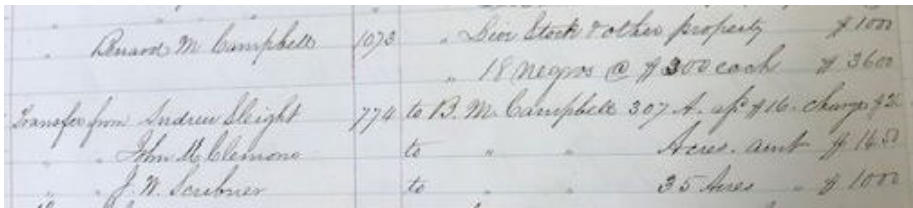 " Bernard M Campbell 1073 " Live Stock & other property $1000
" 18 negros @ $300 each $3600
Transfer from Andrew Sleight 774 to B. M. Campbell 307 A. $16. change
" " John McClemons to " " Acres. amt
" " J. W. Scribner to " " 35 Acres " $1000